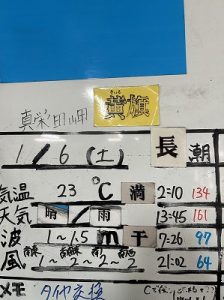 真栄田岬
黄旗
1/6(土) 長潮
気温 23 ℃ 満 2:10 134
天気 晴/雨 13:45 161
波 1~1.5 m 干 7:26
風 1~2~2~2 21:02 64
メモ タイヤ交換